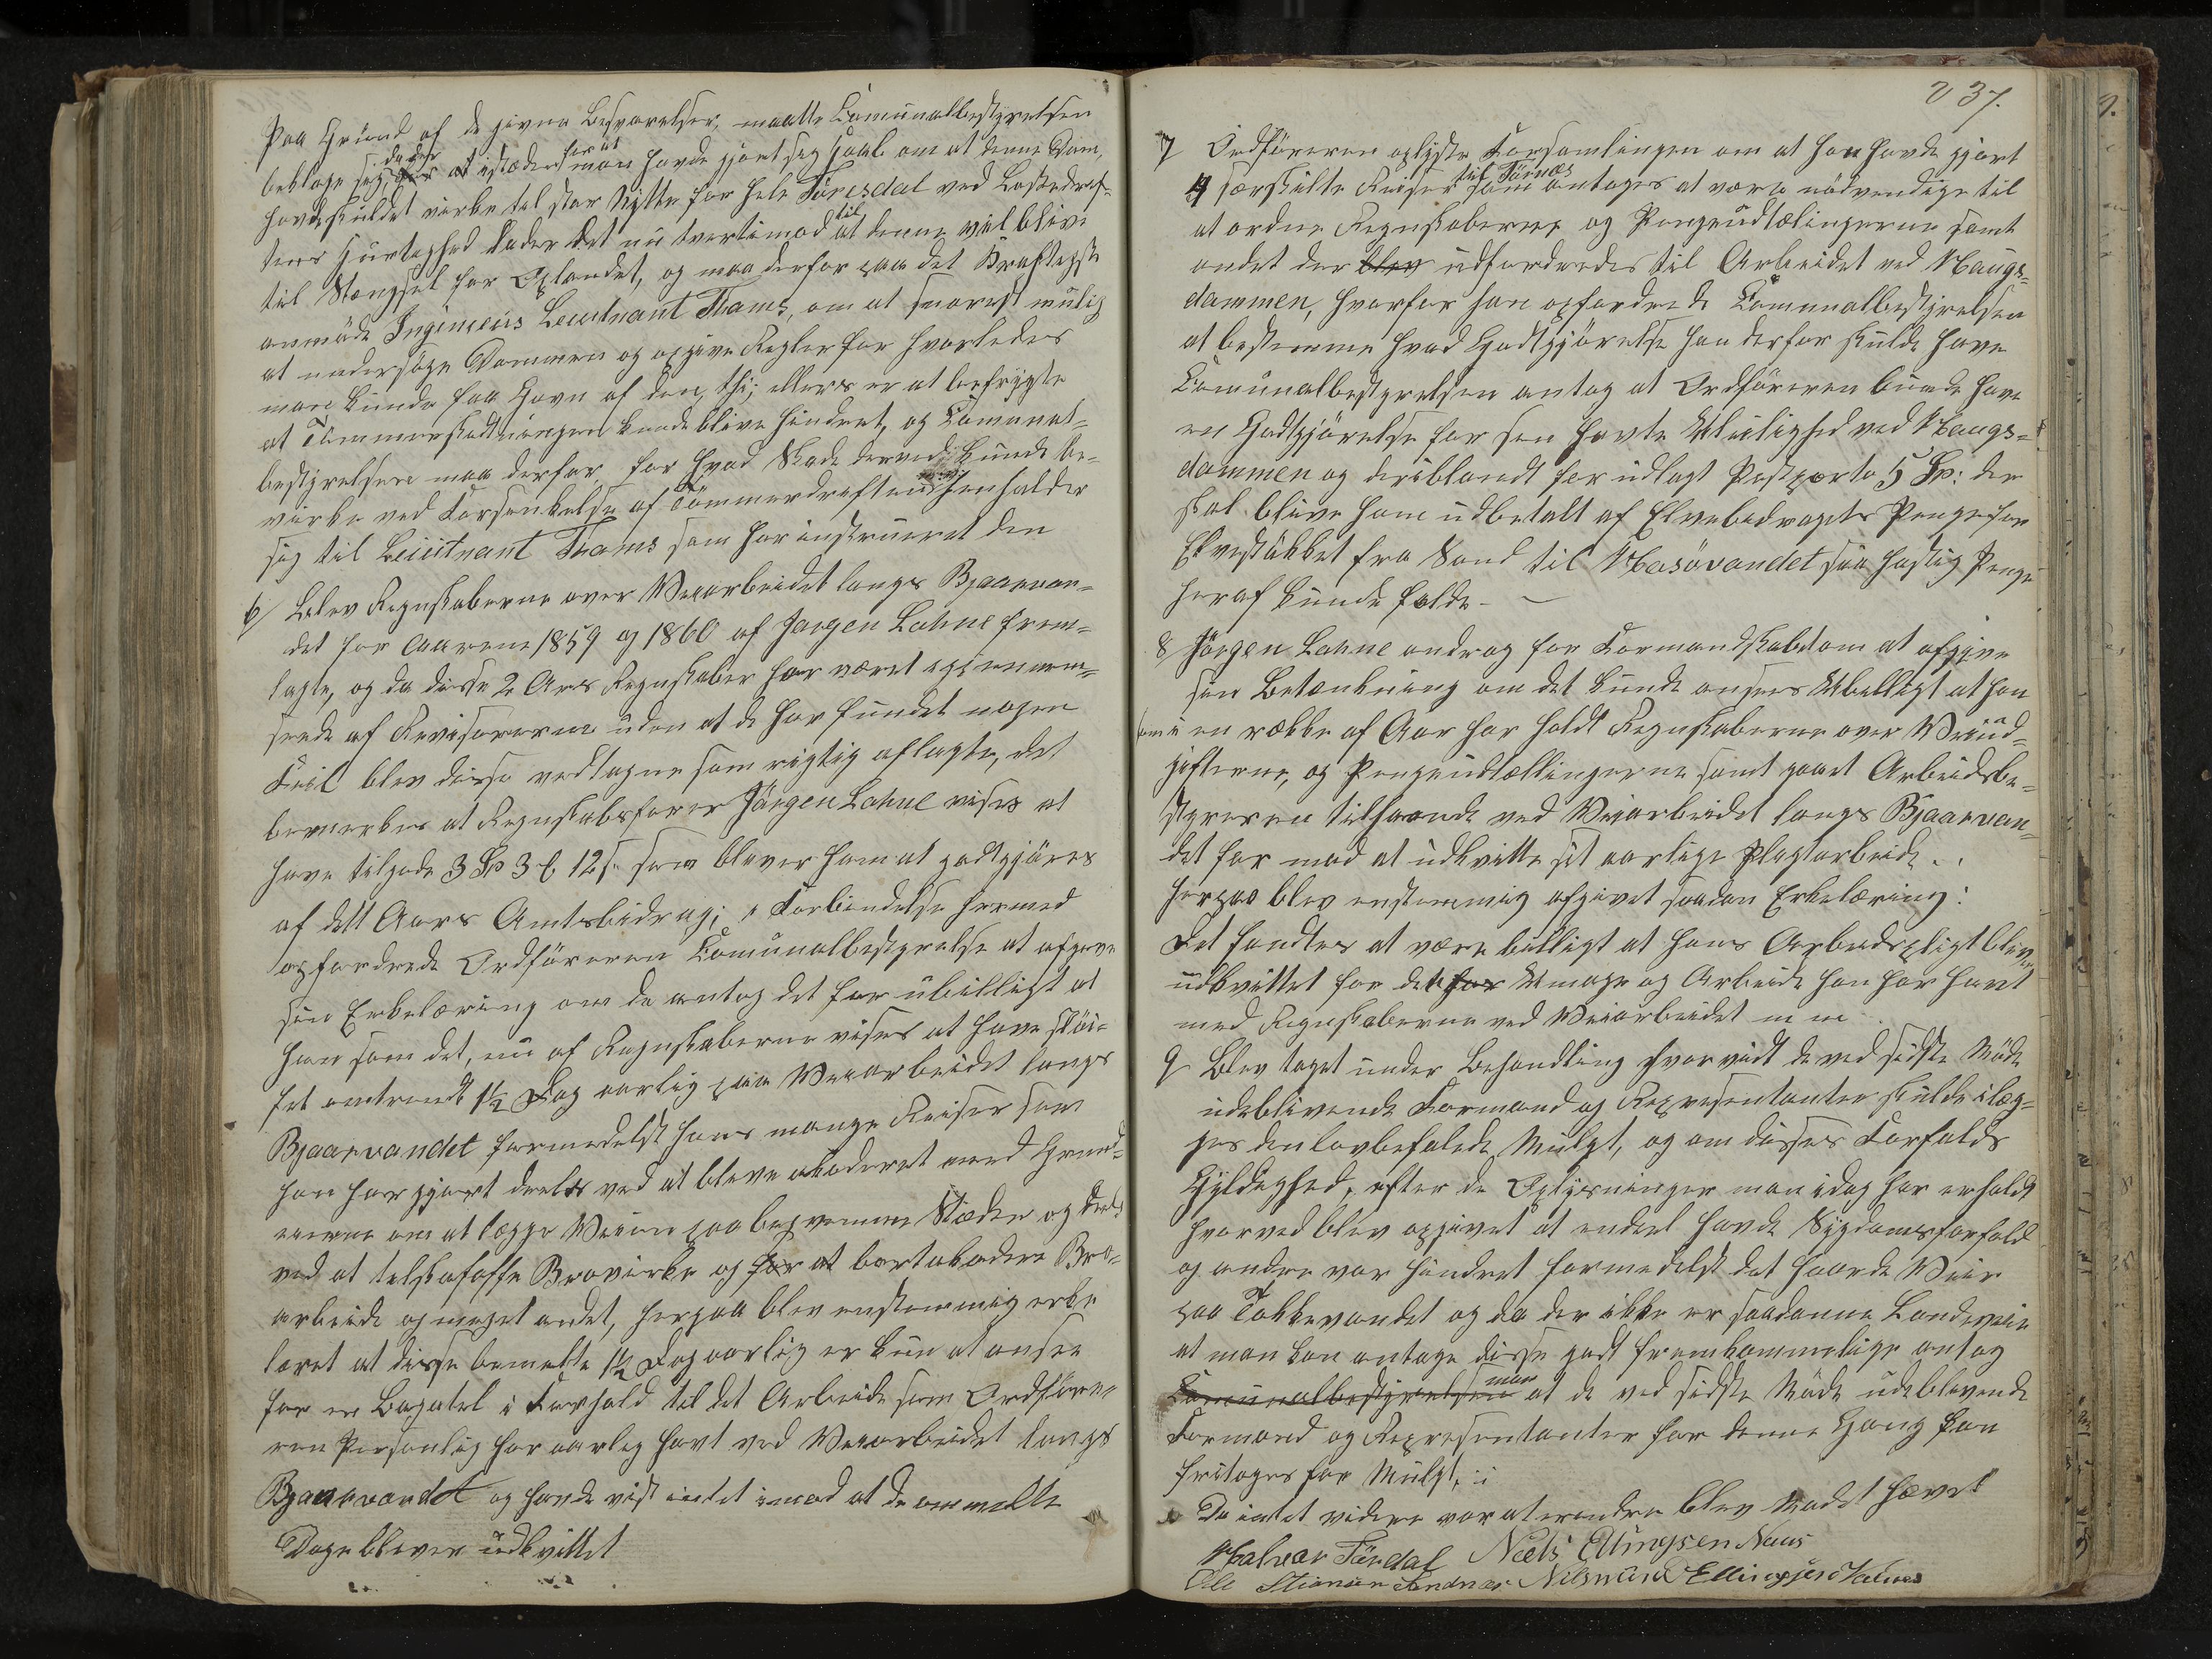 Paa Grund af de givne Besvarelser, maatte Comunalbestyrelsen
beklage sig, da der at istædenfor at man havde gjort sig Haab om at denne Dam,
havde skuldet virke til stor Nytte for hele Föresdal ved Lastedrif-
tens Hurtighed lader det nu tvertimod til at denne vil blive
til Stængsel for Oplandet, og maa derfor paa det Kraftigste
anmode Ingenieus Leutnant Thams, om at snarest mulig
at undersöge Dammen og opgive Regler for hvorledes
man kunde faa Gavn af den, thi; ellers er at befrygte
at Tömmerflodningen kunde blive hindret, og Comunal-
bestyrelsen maa derfor, for hvad Skade derved kunde be-
virke ved Forsinkelse af Tömmerdriften henholder
sig til Leiutnant Thams som har instrueret den
6/ Blev Regnskaberne over Veiarbeidet langs Bjaarvan-
det for Aarene 1859 og 1860 af Jørgen Lahne frem-
lagte, og da disse 2 Ars Regnskaber har været igjennem-
seede af Revisorerne uden at de har fundet nogen
Feil blev disse vedtagne som rigtig aflagte, det
bemærkes at Regnskabsfører Jörgen Lahne vises at
have tilgode 3 Sp 3 ₶ 12 s. som bliver ham at godtgjöres
af dett Aars Amtsbidrag; i Forbindelse hermed
opfordrede Ordföreren Comunalbestyrelse at afgive
sin Erkelæring om de antog det for übilligt at
han som det, nu af Regnskaberne vises at have slöi-
fet omtrendt 1½ Dag aarlig paa Veiarbeidet langs
Bjaarvandet formedelst hans mange Reiser som
han har gjort deels ved at bleve akoderet med Grund-
eierne om at lægge Veien paa beqvemme Stæder og deels
ved at tilskafaffe Brovirke og for at bortakodere Bro-
arbeide og meget andet, herpaa blev enstemmig erke
læret at disse bemelte 1½ Dag aarlig er kun at ansee
for en Bagatel i Forhold til det Arbeide som Ordföre-
ren Personlig har aarlig havt ved Veiarbeidet langs
Bjaarvandet og havde vist intet imod at de ommelte
Dage bliver udkvittet
237.
7 Ordföreren oplyste Forsamlingen om at han havde gjort
4 særskilte Reiser til Tirnæs som antages at være nödvendige til
at ordne Regnskaberne og Pengeudtælingerne samt
andet der blev udfordredes til Arbeidet ved Haugs-
dammen, hvorfor han opfordrede Comunalbestyrelsen
at bestemme hvad Godtgjörelse han derfor skulde have
Comunalbestyrelsen antog at Ordföreren burde have
en Godtgjörelse for sin havte Uleilighed ved Haugs-
dammen og deriblandt for udlagt Postporto 5 Sp: der
skal blive ham udbetalt af Elvebidragets Penge for
Elvestükket fra Sand til Næsövandet saa hastig Penge
heraf kunde falde. —
8 Jörgen Lahne androg for Formandskabet om at afgive
sin Betænkning om det kunde ansees Ubilligt at han
som i en række af Aar har holdt Regnskaberne over Veiud-
gifterne, og Pengeudtællingerne samt gaaet Arbeidsbe-
styreren tilhaande ved Veiarbeidet langs Bjaarvan-
det for mod at udkvitte sit aarlige Pligtarbeide.
herpaa blev enstemmig afgivet saadan Erkelæring:
Det fandtes at være billigt at hans Arbeidspligt bliver
udkvittet for det for Umage og Arbeide han har havt
med Regnskaberne ved Veiarbeidet m m
9 Blev taget under Behandling hvorvidt de ved sidste Möde
udeblivende Formænd og Repræsentanter skulde ilæg-
ges den lovbefalede Mulgt, og om disses Forfalds
Gyldighed, efter de Oplysninger man idag har erholdt
hvorved blev opgivet at endeel havde Sygdomsforfald
og andre var hindret formedelst det haarde Veir
paa Tokkevandet og da der ikke er saadanne Landeveie
at man kan antage disse godt fremkommelige antog
Comunalbestyrelsen man at de ved sidste Möde udeblivende
Formænd og Repræsentanter for denne Gang kan
fritages for Mulgt,
Da intet videre var at erindre blev Mödet hævet
Halvor Föredal Niels Ellingsen Naus
Ole Stianson Sandnæs Nelsmund Ellingsen Valnes